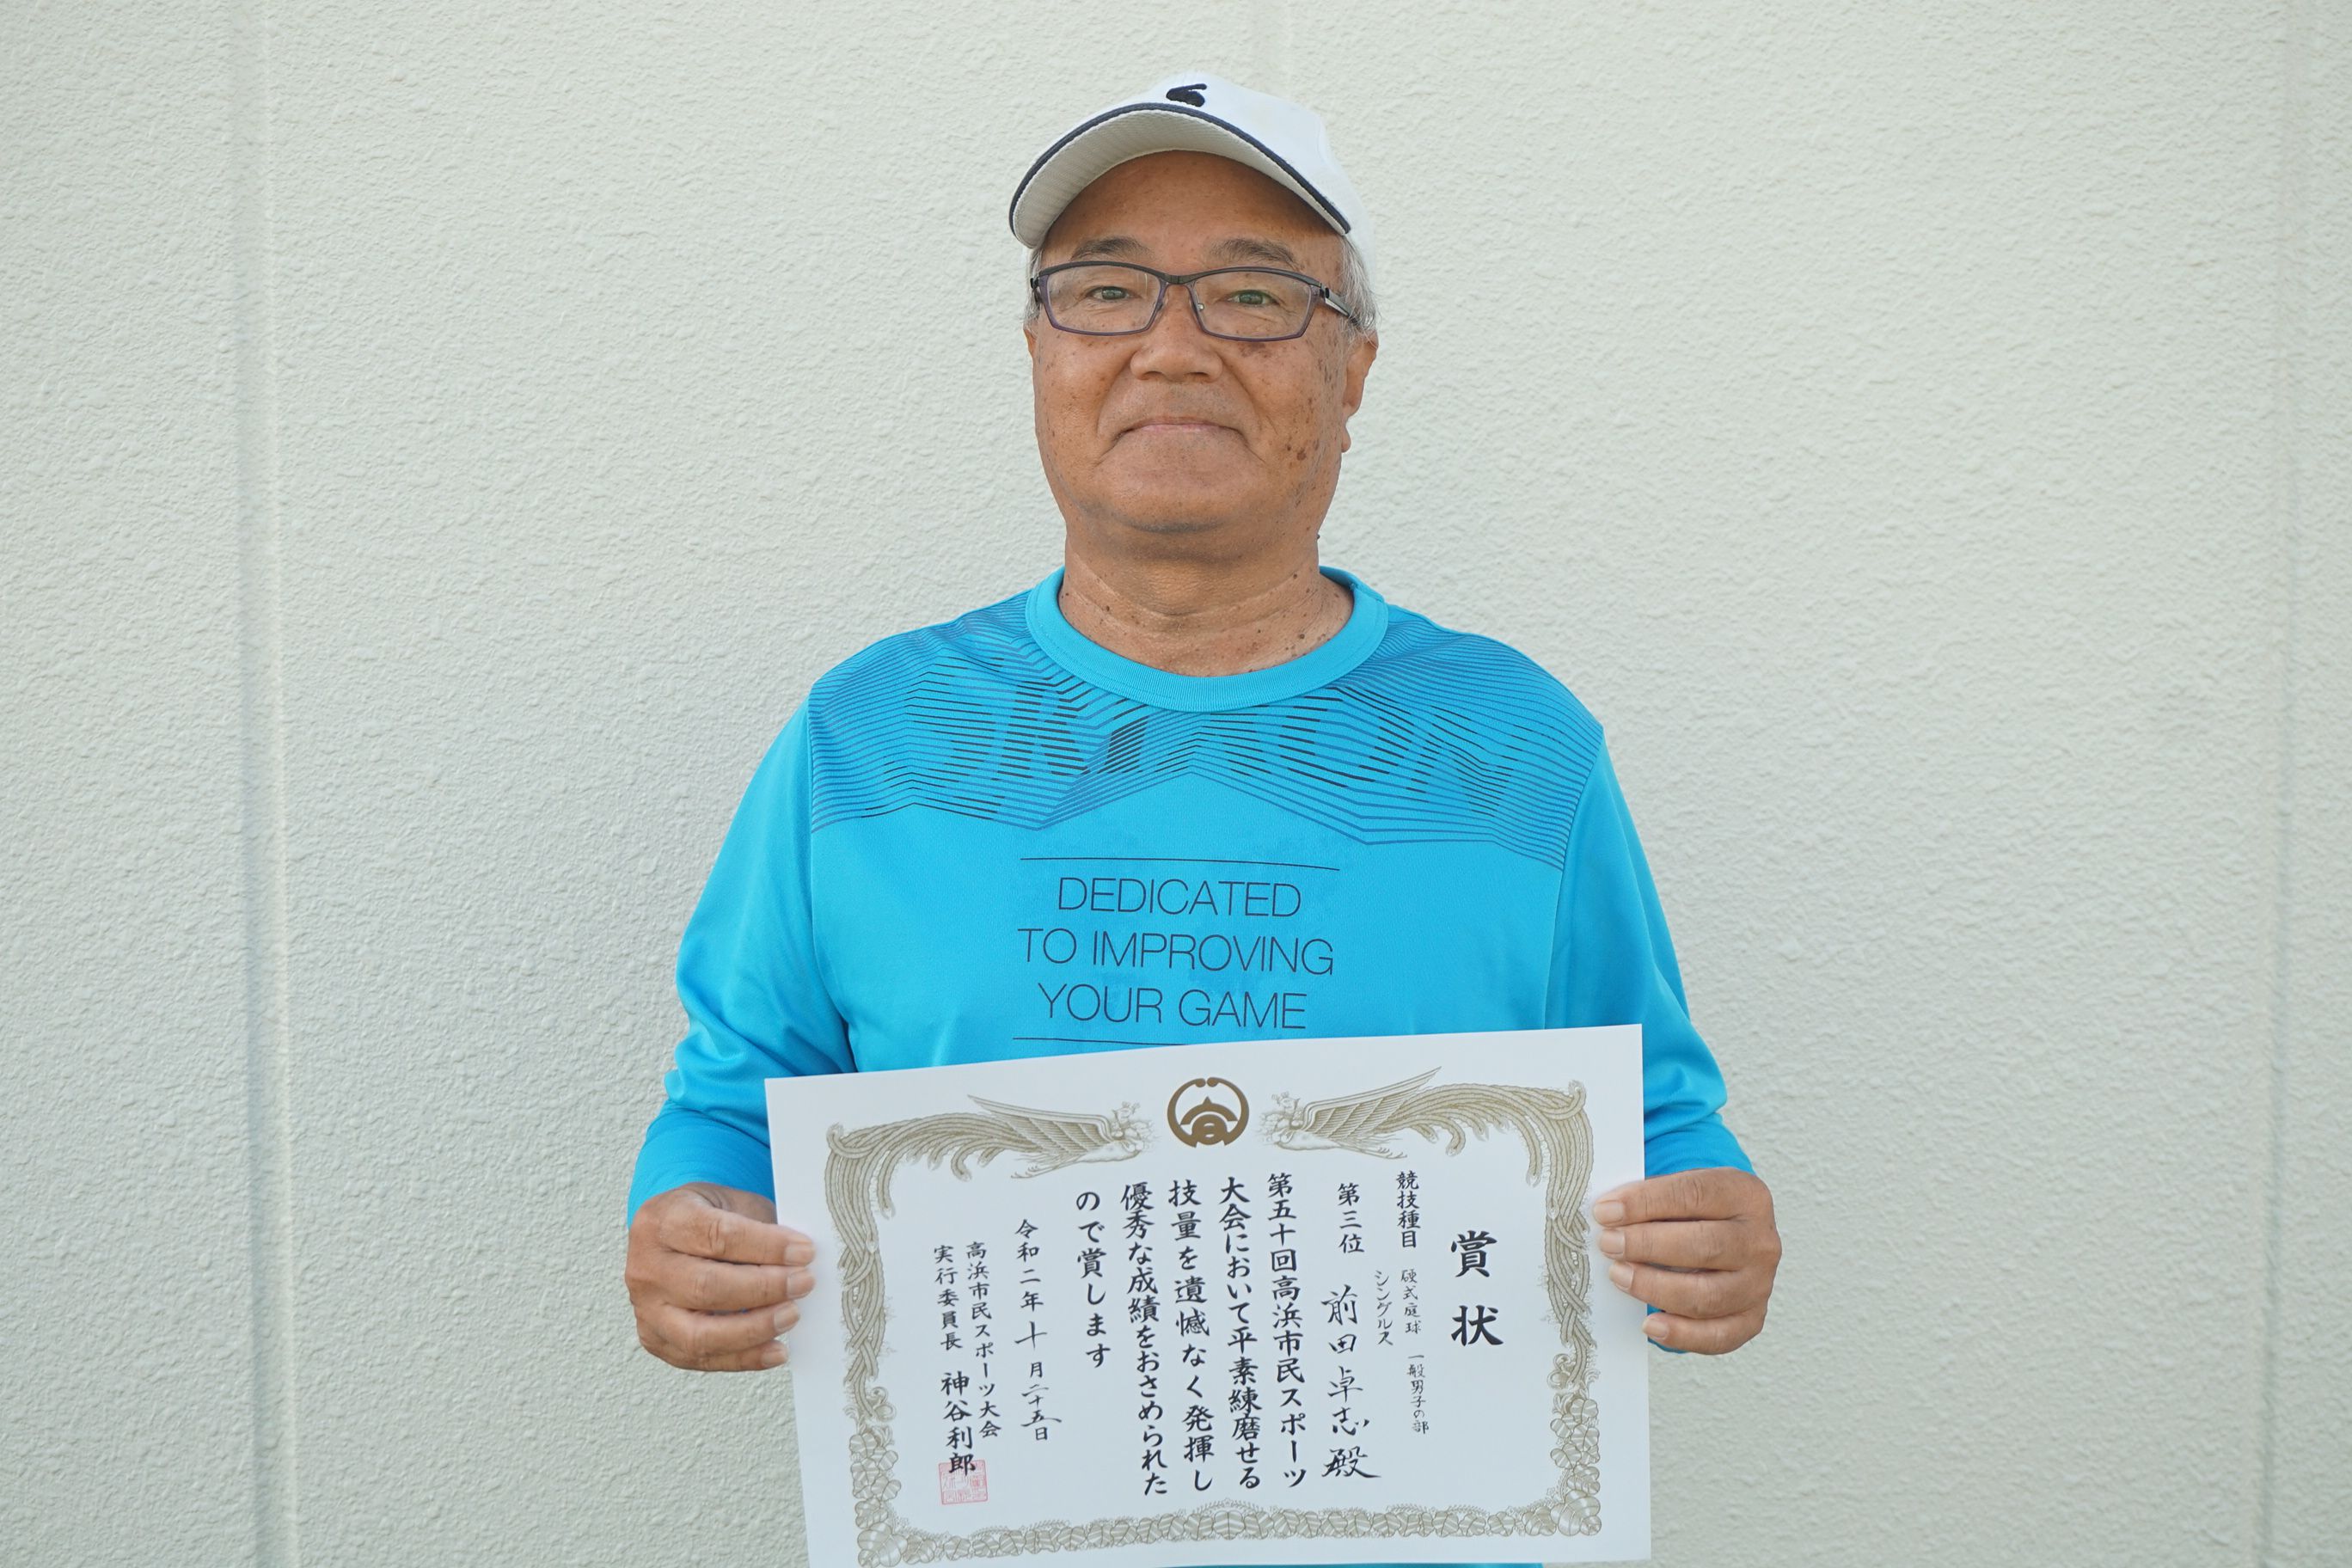 DEDICATED
TO IMPROVING
YOUR GAME
賞状
競技種目 硬式庭球 一般男子の部
シングルス
第三位 前田卓志殿
第五十回高浜市民スポーツ
大会において平素練磨せる
技量を遺憾なく発揮し
優秀な成績をおさめられた
ので賞します
令和二年十月二十五日
高浜市民スポーツ大会
実行委員長 神谷利郎